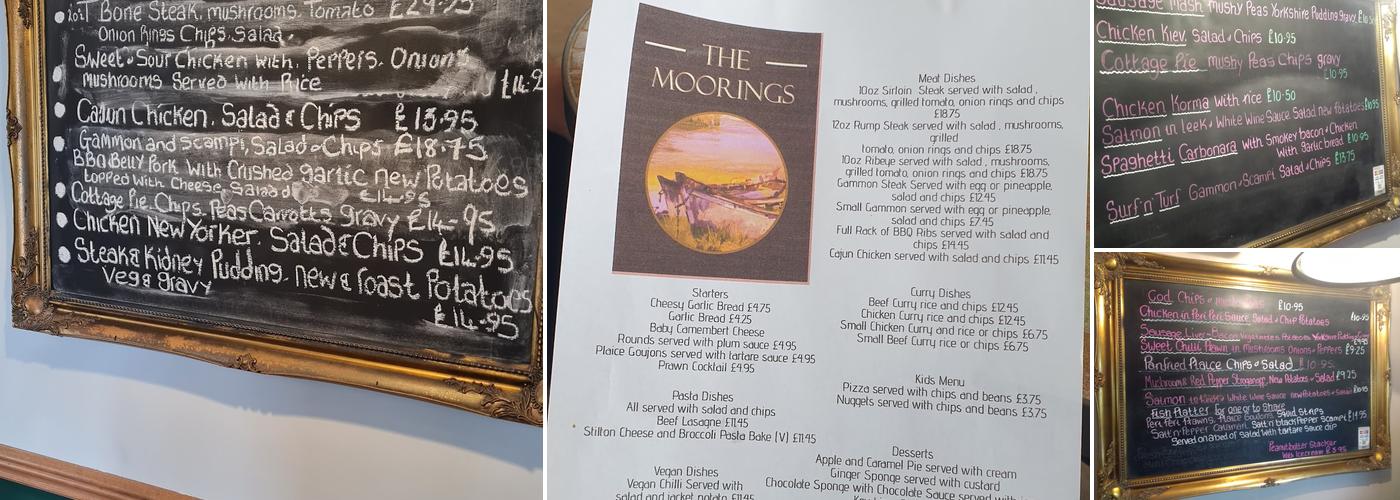 Bone Steak, mushrooms. Tomato £29.95
Onion Rings Chips. Salad.
Sweet & Sour Chicken with. Peppers. Onions
mushrooms Served with Rice
Cajun Chicken. Salad & Chips £13.95
Gammon and Scampi, Salad & Chips £18.75
BBQ Belly Pork with Crushed garlic new Potatoes
topped with Cheese, Salad £14.95
Cottage Pie. Chips. Peas Carrotts gravy £14-95
Chicken New Yorker. Salad & Chips £14.95
Steak & Kidney Pudding. new & roast Potatoes
Veg & gravy
£14.95
THE
MOORINGS
Starters
Cheesy Garlic Bread £4.75
Garlic Bread £4.25
Baby Camembert Cheese
Rounds served with plum sauce £4.95
Plaice Goujons served with tartare sauce £4.95
Prawn Cocktail £4.95
Pasta Dishes
All served with salad and chips
Beef Lasagne £11.45
Stilton Cheese and Broccoli Pasta Bake (V) £11.45
Vegan Dishes
Vegan Chilli Served with
salad and jacket potato £11.45
Meat Dishes
10oz Sirloin Steak served with salad ,
mushrooms, grilled tomato, onion rings and chips
£18.75
12oz Rump Steak served with salad , mushrooms,
grilled
tomato, onion rings and chips £18.75
10oz Ribeye served with salad , mushrooms,
grilled tomato, onion rings and chips £18.75
Gammon Steak Served with egg or pineapple,
salad and chips £12.45
Small Gammon served with egg or pineapple,
salad and chips £7.45
Full Rack of BBQ Ribs served with salad and
chips £14.45
Cajun Chicken served with salad and chips £11.45
Curry Dishes
Beef Curry rice and chips £12.45
Chicken Curry rice and chips £12.45
Small Chicken Curry and rice or chips £6.75
Small Beef Curry rice or chips £6.75
Kids Menu
Pizza served with chips and beans £3.75
Nuggets served with chips and beans £3.75
Desserts
Apple and Caramel Pie served with cream
Ginger Sponge served with custard
Chocolate Sponge with Chocolate Sauce served with
Sausage Mash mushy Peas Yorkshire Pudding gravy
Chicken Kiev. Salad & Chips £10.95
Cottage Pie mushy Peas Chips gravy
£10.95
Chicken Korma with rice £10.50
Salmon in leek & White Wine Sauce Salad new Potatoes £10.95
Spaghetti Carbonara with Smokey bacon & Chicken
with garlic bread £10.95
Surf n' Turf Gammon & Scampi Salad & Chips £13.75
Cod Chips & £10.95
Chicken in Peri Peri Sauce Salad & Chip Potatoes
Sausage Liver & Bacon Yorkshire Pudding
Sweet Chilli Prawn in Mushrooms Onions & Peppers £9.25
Panfried Plaice Chips & Salad £10.95
Mushroom & Red Pepper Stroganoff. New Potatoes & Salad £9.25
Salmon White Wine Sauce new Potatoes &
Fish Platter for one or to Share
Peri Peri Prawns, Plaice Goujons, Squid Strips
Salt n Pepper Calamari Salt n black Pepper Scampi £14.95
Served on a bed of Salad with tartare Sauce dip
Peanut butter Stacker
With Icecream £3.95